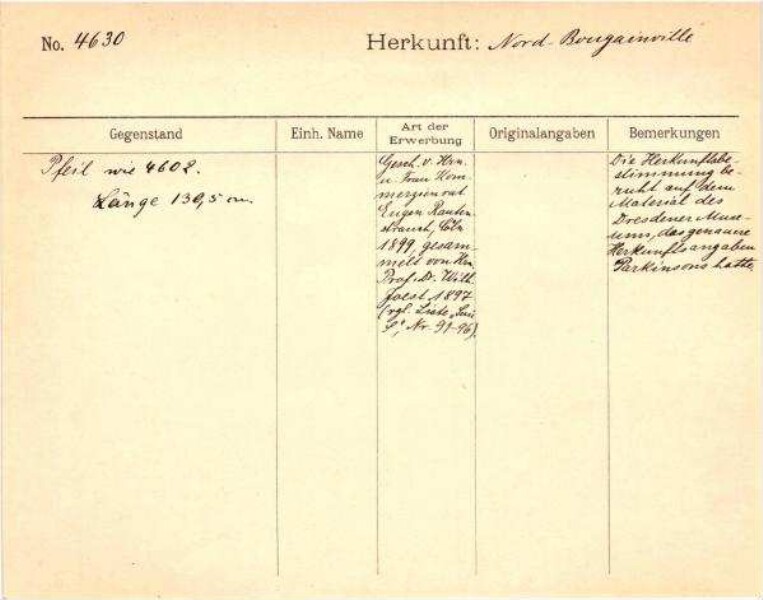 No. 4630
Herkunft: Nord-Bougainville
Gegenstand
Einh. Name
Art der
Erwerbung
Originalangaben
Bemerkungen
Pfeil wie 4602.
Länge 130,5 cm.
Gesch. v. Hrn.
u. Frau Kom-
merzienrat
Eugen Rauten-
strauch, Cöln
1899, gesam-
melt von Hrn.
Prof. Dr. Wilh.
Joest 1897
(vgl. Liste
Nr. 91-96).
Die Herkunftsbe-
stimmung be-
ruht auf dem
Material des
Dresdener Muse-
ums, das genauere
Herkunftsangaben
Parkinsons hatte.